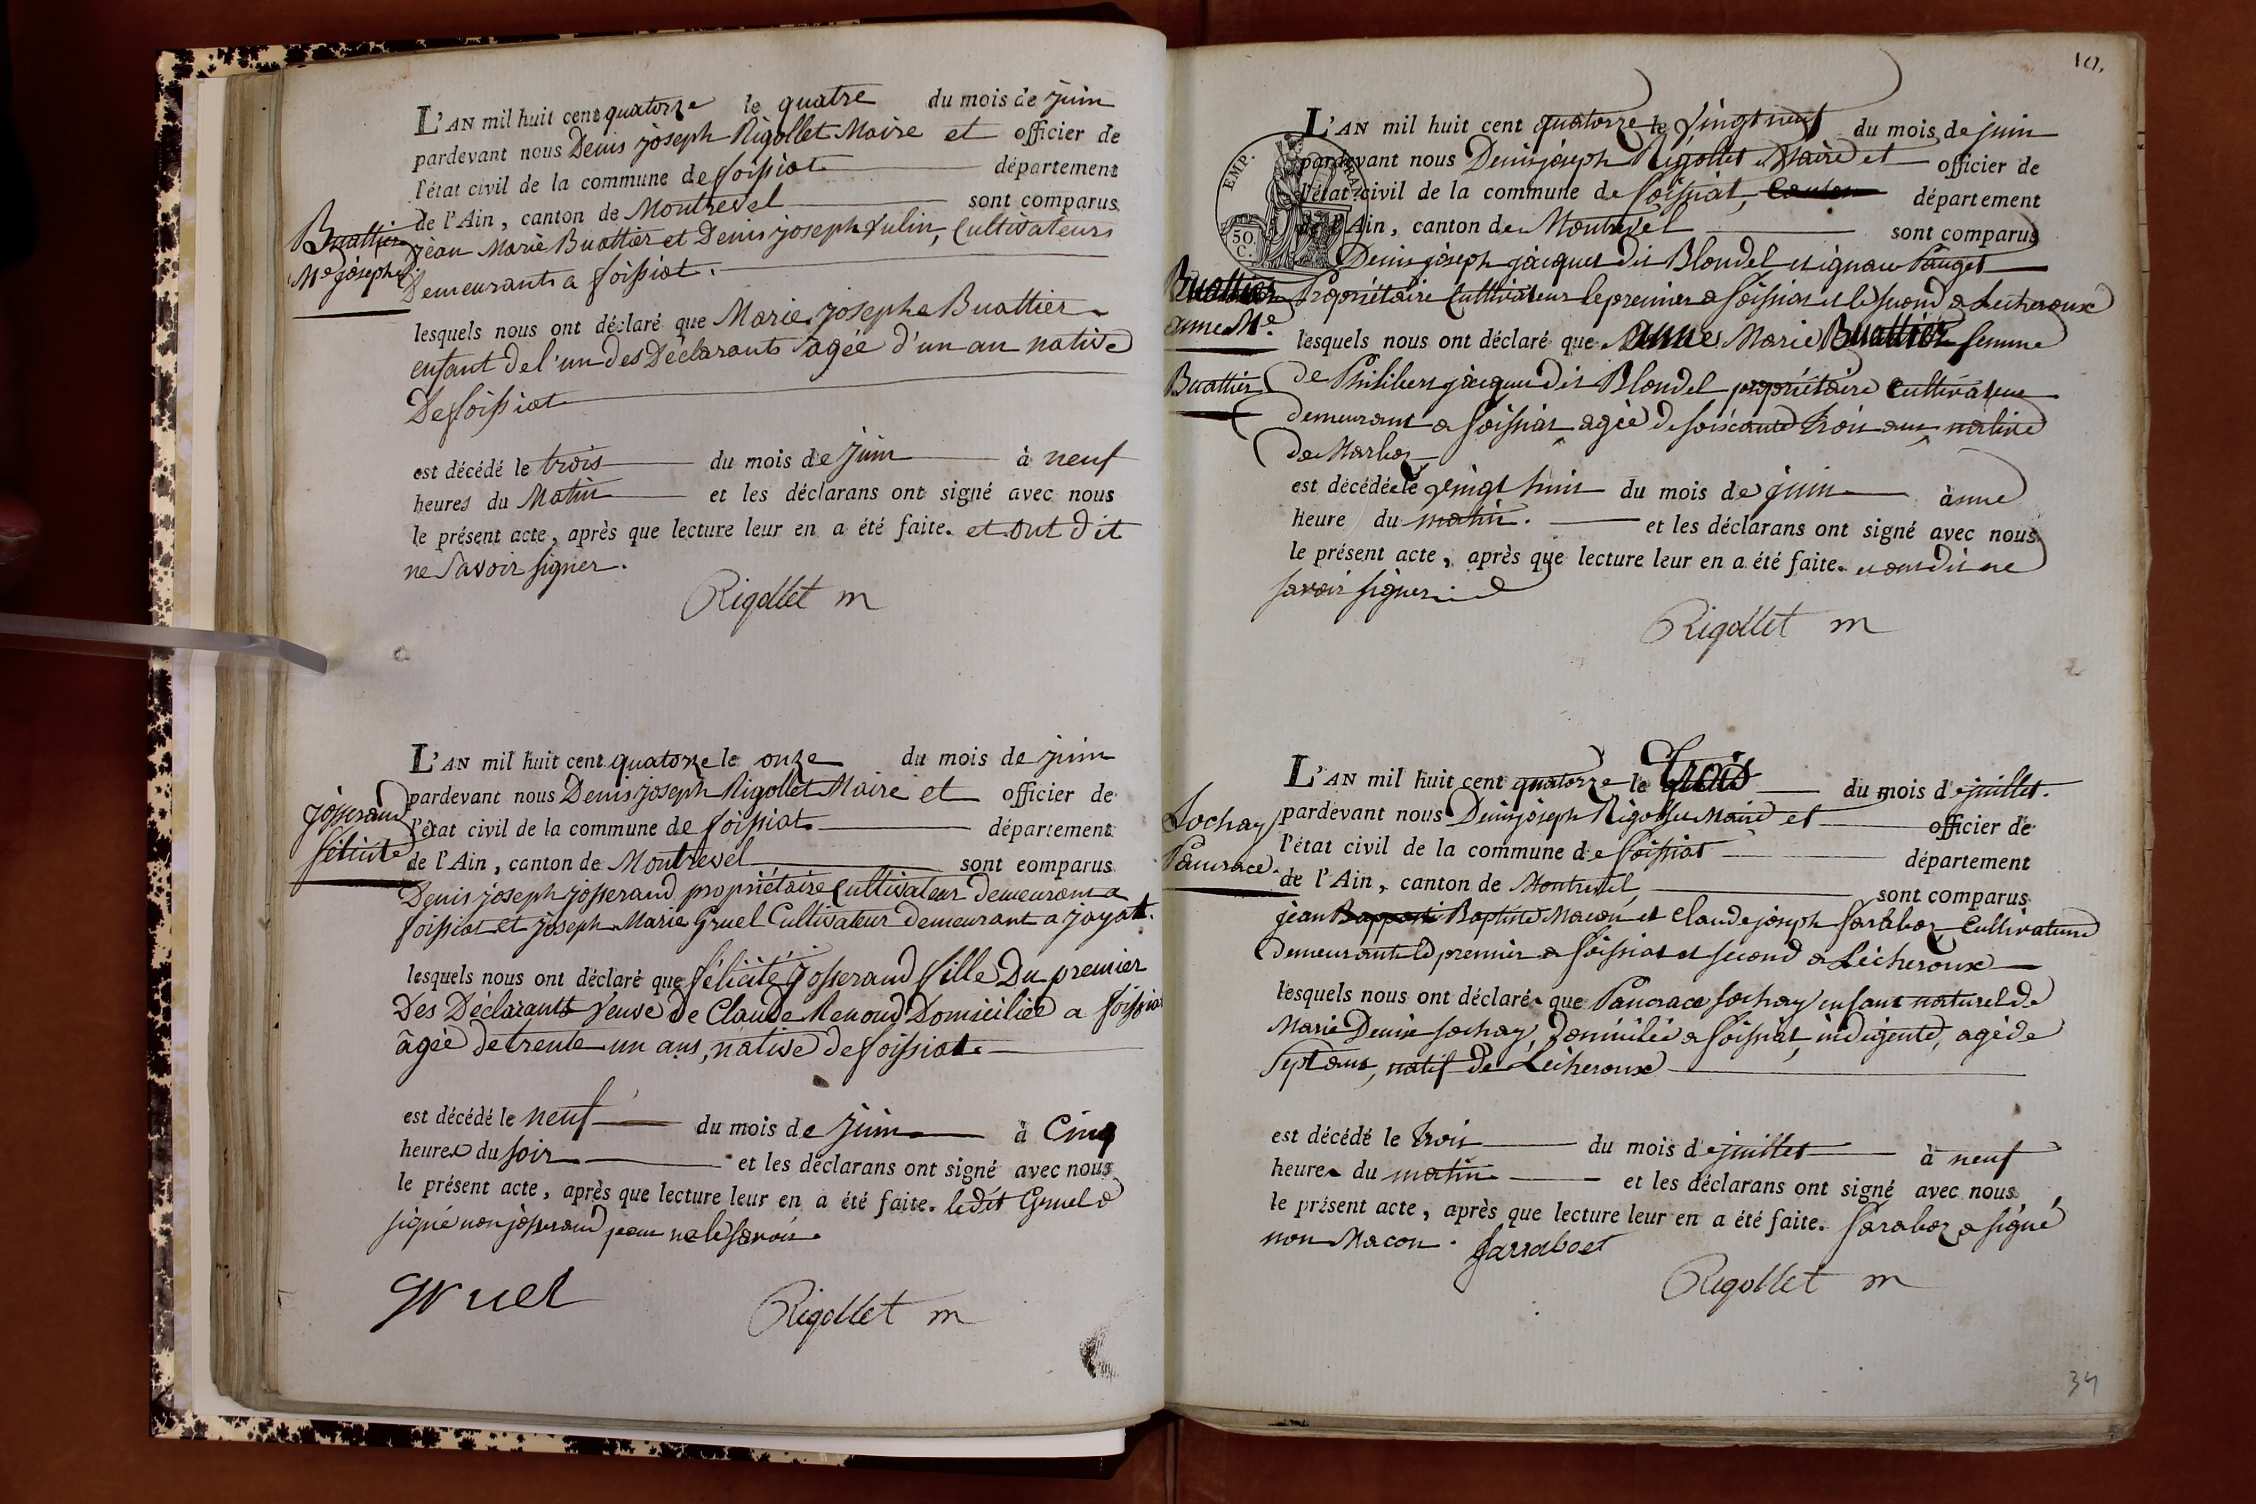 L'AN mil huit cent quatorze le quatre du mois de juin
pardevant nous Denis joseph Rigollet Maire et officier de
l'état civil de la commune de foissiat département
de l'Ain, canton de Montrevel sont comparus
Buattier
Me josephe
jean Marie Buattier et Denis joseph Vulin, Cultivateurs
Demeurants a foissiat.
lesquels nous ont déclaré que Marie josephe Buattier
enfant de l'un des Déclarants agée d'un an native
De foissiat
est décédé le trois du mois de juin à neuf
heures du Matin et les déclarans ont signé avec nous
le présent acte, après que lecture leur en a été faite. et ont dit
ne savoir signer.
Rigollet m
L'AN mil huit cent quatorze le onze du mois de juin
josserand
félicité
pardevant nous Denis joseph Rigollet Maire et officier de
l'état civil de la commune de foissiat département
de l'Ain, canton de Montrevel sont comparus
Denis joseph josserand propriétaire Cultivateur demeurant a
foissiat et joseph Marie Gruel Cultivateur demeurant a jayat.
lesquels nous ont déclaré que félicité josserand fille Du premier
Des Déclarants veuve de Claude Renoud Domiciliée a foissiat
âgée de trente un ans, native de foissiat.
est décédé le neuf du mois de juin à Cinq
heures du soir et les déclarans ont signé avec nous
le présent acte, après que lecture leur en a été faite. ledit Gruel a
signé non josserand pour ne le savoir.
Gruel
Rigollet m
10.
L'AN mil huit cent quatorze le vingt neuf du mois de juin
EMP. 50 C.
pardevant nous Denis joseph Rigollet Maire et officier de
l'état civil de la commune de foissiat, canton département
de l'Ain, canton de Montrevel sont comparus
Denis joseph jacquet dit Blondel et ignace Pauget
Buattier
anne Me
Buattier
Propriétaire Cultivateurs le premier a foissiat et le second a Lescheroux
lesquels nous ont déclaré que anne Marie Buattier femme
de Philibert jacquet dit Blondel propriétaire Cultivateur
demeurant a foissiat agée de soixante trois ans native
de Marboz
est décédée le vingt huit du mois de juin à une
heure du matin. et les déclarans ont signé avec nous
le présent acte, après que lecture leur en a été faite. et ont dit ne
savoir signer
Rigollet m
L'AN mil huit cent quatorze le Trois du mois de juillet.
Sochay
Pancrace
pardevant nous Denis joseph Rigollet Maire et officier de
l'état civil de la commune de foissiat département
de l'Ain, canton de Montrevel sont comparus
jean Baptiste Macon, et Claude joseph farraboz Cultivateurs
demeurants le premier a foissiat et second a Lescheroux
lesquels nous ont déclaré que Pancrace Sochay enfant naturel de
Marie Denise Sochay, domiciliée a foissiat, indigente, agé de
Sept ans, natif de Lescheroux
est décédé le trois du mois de juillet à neuf
heures du matin et les déclarans ont signé avec nous
le présent acte, après que lecture leur en a été faite. faraboz a signé
non Macon. farraboet
Rigollet m
34